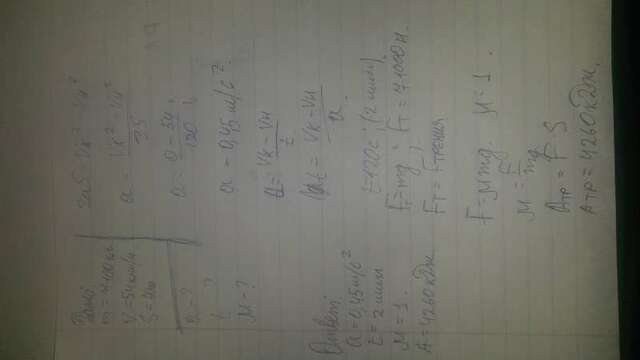 Дано:
V=54км/ч
a-?
t ?
M-?
Ответ:
a=0,45м/с²
t=2мин
M=1.
A=4260кДж
2aS=Vк²-Vн²
a = Vк²-Vн² / 2S
a = 0-54 / 120
a=0,45м/с².
a = Vк-Vн / t
t = Vк-Vн / a.
t=120с (2мин)
F=mg Fт=71000Н.
Fт=Fтрения
F=Mmg M=1.
M= F / mg
Aтр=F·S
Aтр=4260кДж.